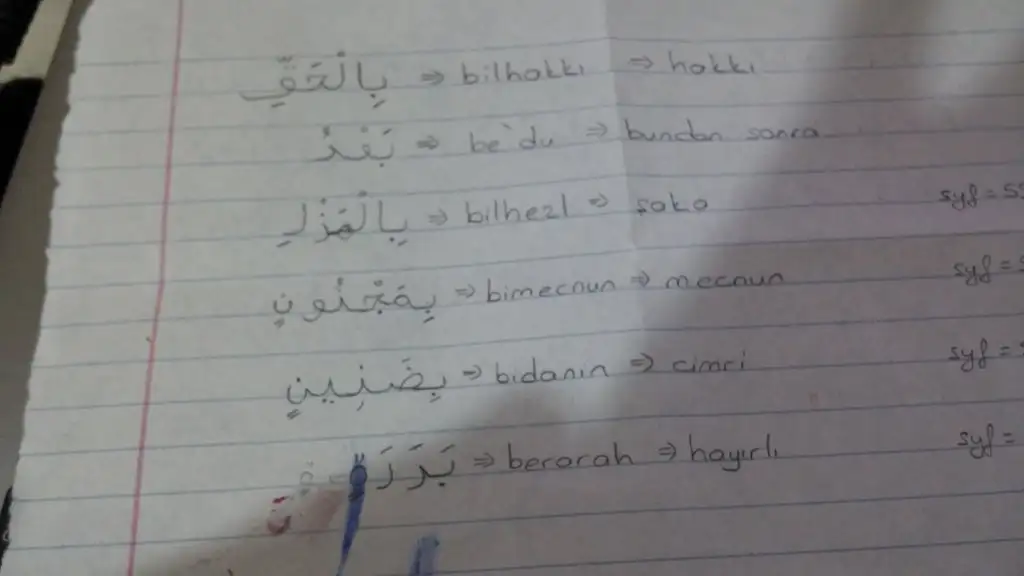 بِالْحَقِّ ⇒ bilhakkı ⇒ hakkı
بَعْدُ ⇒ be'du ⇒ bundan sonra
بِالْهَزْلِ ⇒ bilhezl ⇒ şaka syf = 55
بِمَجْنُونٍ ⇒ bimecnun ⇒ mecnun syf =
بِضَنِينٍ ⇒ bidanin ⇒ cimri syf =
بَرَرَةٍ ⇒ berarah ⇒ hayırlı syf =